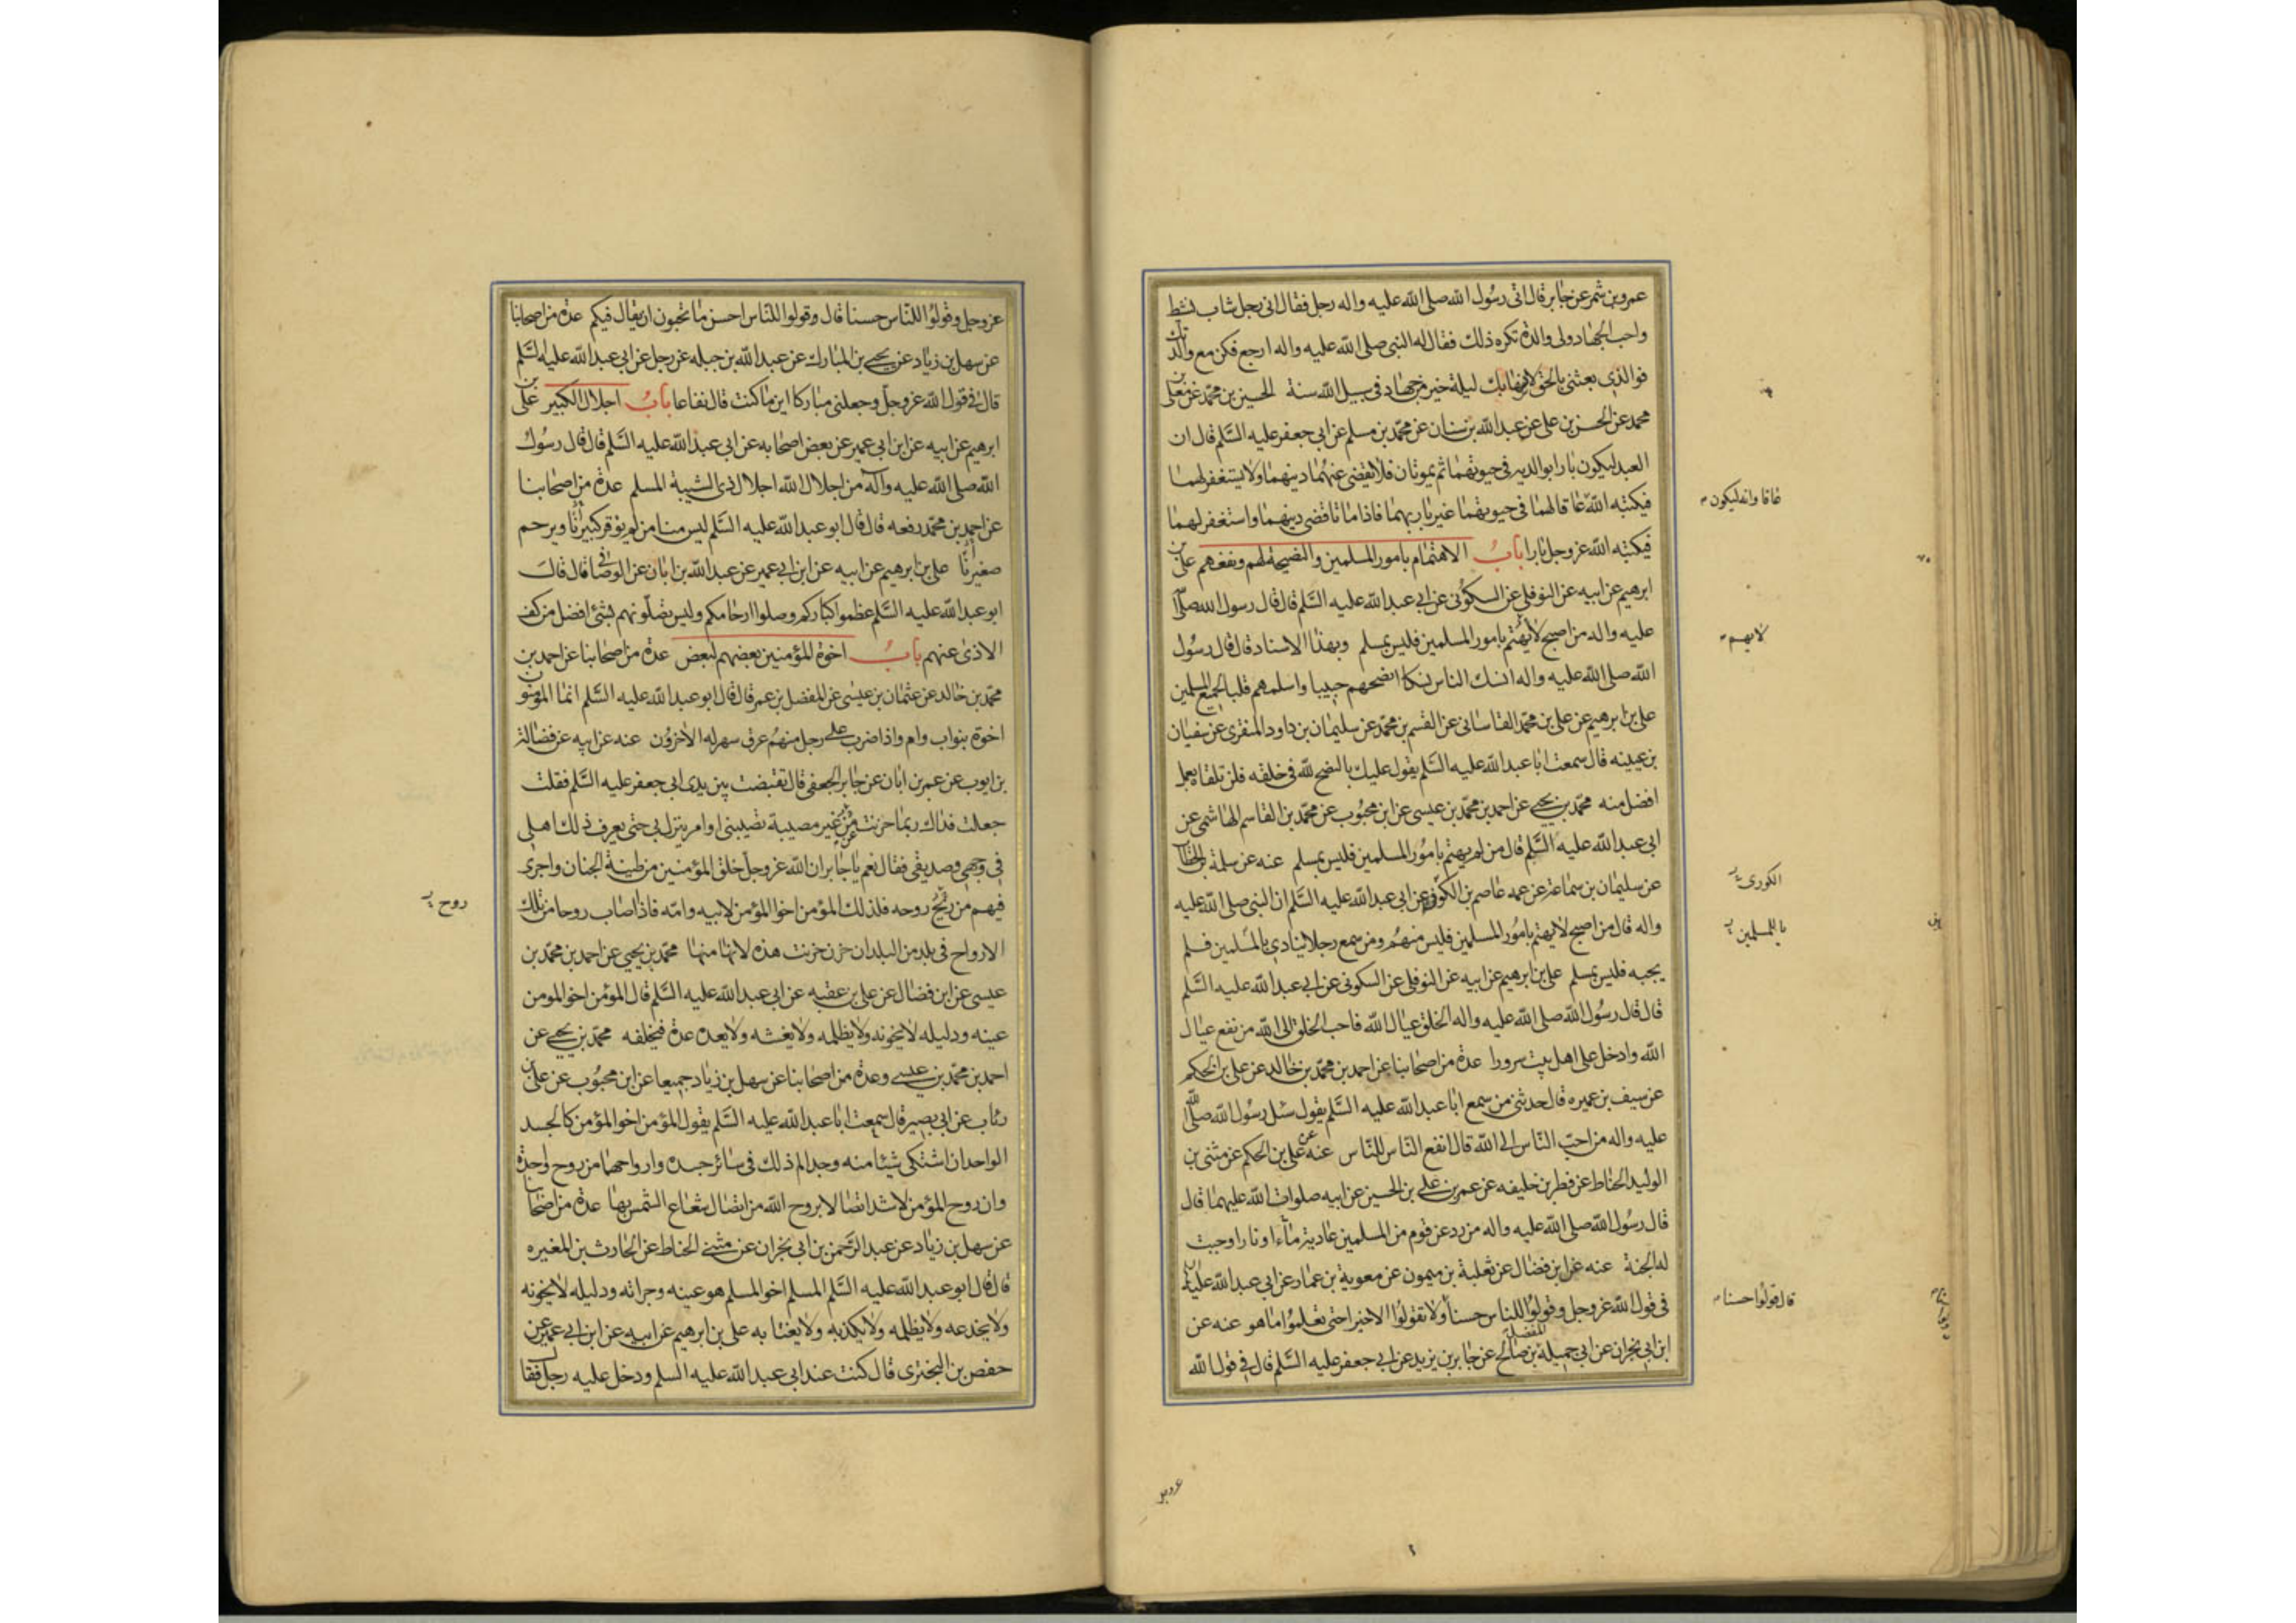 عمرو بن شمر عن جابر قال اتى رسول الله صلى الله عليه واله رجل فقال انى رجل شاب نشط
واحب الجهاد ولى والدة تكره ذلك فقال له النبى صلى الله عليه واله ارجع فكن مع والدتك
فوالذى بعثنى بالحق لانسها بك ليلة خير من جهاد فى سبيل الله سنة الحسين بن محمد عن معلى بن
محمد عن الحسن بن على عن عبد الله بن سنان عن محمد بن مسلم عن ابى جعفر عليه السلم قال ان
العبد ليكون بارا بوالديه فى حيوتهما ثم يموتان فلا يقضى عنهما دينهما ولا يستغفر لهما
فيكتبه الله عاقا لهما فى حيوتهما غير بار بهما فاذا ماتا قضى دينهما واستغفر لهما
فيكتبه الله عز وجل بارا باب الاهتمام بامور المسلمين والنصيحة لهم ونفعهم على بن
ابرهيم عن ابيه عن النوفلى عن السكونى عن ابى عبد الله عليه السلم قال قال رسول الله صلى الله
عليه واله من اصبح لا يهتم بامور المسلمين فليس بمسلم وبهذا الاسناد قال قال رسول
الله صلى الله عليه واله انسك الناس نسكا انصحهم جيبا واسلمهم قلبا لجميع المسلمين
على بن ابرهيم عن على بن محمد القاسانى عن القسم بن محمد عن سليمان بن داود المنقرى عن سفيان
بن عيينه قال سمعت ابا عبد الله عليه السلم يقول عليك بالنصح لله فى خلقه فلن تلقاه بعمل
افضل منه محمد بن يحيى عن احمد بن محمد بن عيسى عن ابن محبوب عن محمد بن القاسم الهاشمى عن
ابى عبد الله عليه السلم قال من لم يهتم بامور المسلمين فليس بمسلم عنه عن سلمة بن الخطاب
عن سليمان بن سماعة عن عمه عاصم بن الكوفى عن ابى عبد الله عليه السلم ان النبى صلى الله عليه
واله قال من اصبح لا يهتم بامور المسلمين فليس منهم ومن سمع رجلا ينادى يا لمسلمين فلم
يجبه فليس بمسلم على بن ابرهيم عن ابيه عن النوفلى عن السكونى عن ابى عبد الله عليه السلم
قال قال رسول الله صلى الله عليه واله الخلق عيال الله فاحب الخلق الى الله من نفع عيال
الله وادخل على اهل بيت سرورا عدة من اصحابنا عن احمد بن محمد بن خالد عن على بن الحكم
عن سيف بن عميره قال حدثنى من سمع ابا عبد الله عليه السلم يقول سئل رسول الله صلى الله
عليه واله من احب الناس الى الله قال انفع الناس للناس عنه عن على بن الحكم عن مثنى بن
الوليد الحناط عن فطر بن خليفه عن عمر بن على بن الحسين عن ابيه صلوات الله عليهما قال
قال رسول الله صلى الله عليه واله من رد عن قوم من المسلمين عادية ماء او نار اوجبت
له الجنة عنه عن ابن فضال عن ثعلبة بن ميمون عن معوية بن عمار عن ابى عبد الله عليه السلم
فى قول الله عز وجل وقولوا للناس حسنا ولا تقولوا الا خيرا حتى تعلموا ما هو عنه عن
ابن ابى نجران عن ابى جميلة المفضل بن صالح عن جابر بن يزيد عن ابى جعفر عليه السلم قال فى قول الله
عاقا وانه ليكون
لا يهم
الكورى
يا للمسلمين
قال قولوا حسنا
عز وجل
عز وجل وقولوا للناس حسنا قال وقولوا للناس احسن ما تحبون ان يقال فيكم عدة من اصحابنا
عن سهل بن زياد عن يحيى بن المبارك عن عبد الله بن جبله عن رجل عن ابى عبد الله عليه السلم
قال فى قول الله عز وجل وجعلنى مباركا اين ما كنت قال نفاعا باب اجلال الكبير على بن
ابرهيم عن ابيه عن ابن ابى عمير عن بعض اصحابه عن ابى عبد الله عليه السلم قال قال رسول
الله صلى الله عليه واله من اجلال الله اجلال ذى الشيبة المسلم عدة من اصحابنا
عن احمد بن محمد رفعه قال قال ابو عبد الله عليه السلم ليس منا من لم يوقر كبيرنا ويرحم
صغيرنا على بن ابرهيم عن ابيه عن ابن ابى عمير عن عبد الله بن ابان عن الوصافى قال قال
ابو عبد الله عليه السلم عظموا كباركم وصلوا ارحامكم وليس تصلونهم بشئ افضل من كف
الاذى عنهم باب اخوة المؤمنين بعضهم لبعض عدة من اصحابنا عن احمد بن
محمد بن خالد عن عثمان بن عيسى عن المفضل بن عمر قال قال ابو عبد الله عليه السلم انما المؤمنون
اخوة بنواب وام واذا ضرب على رجل منهم عرق سهر له الاخرون عنه عن ابيه عن فضالة
بن ايوب عن عمر بن ابان عن جابر الجعفى قال تقبضت بين يدى ابى جعفر عليه السلم فقلت
جعلت فداك ربما حزنت من غير مصيبة تصيبنى او امر ينزل بى حتى يعرف ذلك اهلى
فى وجهى وصديقى فقال نعم يا جابر ان الله عز وجل خلق المؤمنين من طينة الجنان واجرى
فيهم من ريح روحه فلذلك المؤمن اخو المؤمن لابيه وامه فاذا اصاب روحا من تلك
الارواح فى بلد من البلدان حزن حزنت هذه لانها منها محمد بن يحيى عن احمد بن محمد بن
عيسى عن ابن فضال عن على بن عقبه عن ابى عبد الله عليه السلم قال المؤمن اخو المومن
عينه ودليله لا يخونه ولا يظلمه ولا يغشه ولا يعده عدة فيخلفه محمد بن يحيى عن
احمد بن محمد بن عيسى وعدة من اصحابنا عن سهل بن زياد جميعا عن ابن محبوب عن على بن
رئاب عن ابى بصير قال سمعت ابا عبد الله عليه السلم يقول المؤمن اخو المؤمن كالجسد
الواحد ان اشتكى شيئا منه وجد الم ذلك فى سائر جسده وارواحهما من روح واحدة
وان روح المؤمن لاشد اتصالا بروح الله من اتصال شعاع الشمس بها عدة من اصحابنا
عن سهل بن زياد عن عبد الرحمن بن ابى نجران عن مثنى الحناط عن الحارث بن المغيره
قال قال ابو عبد الله عليه السلم المسلم اخو المسلم هو عينه ومراته ودليله لا يخونه
ولا يخدعه ولا يظلمه ولا يكذبه ولا يغتابه على بن ابرهيم عن ابيه عن ابن ابى عمير عن
حفص بن البخترى قال كنت عند ابى عبد الله عليه السلم ودخل عليه رجل فقال
روح